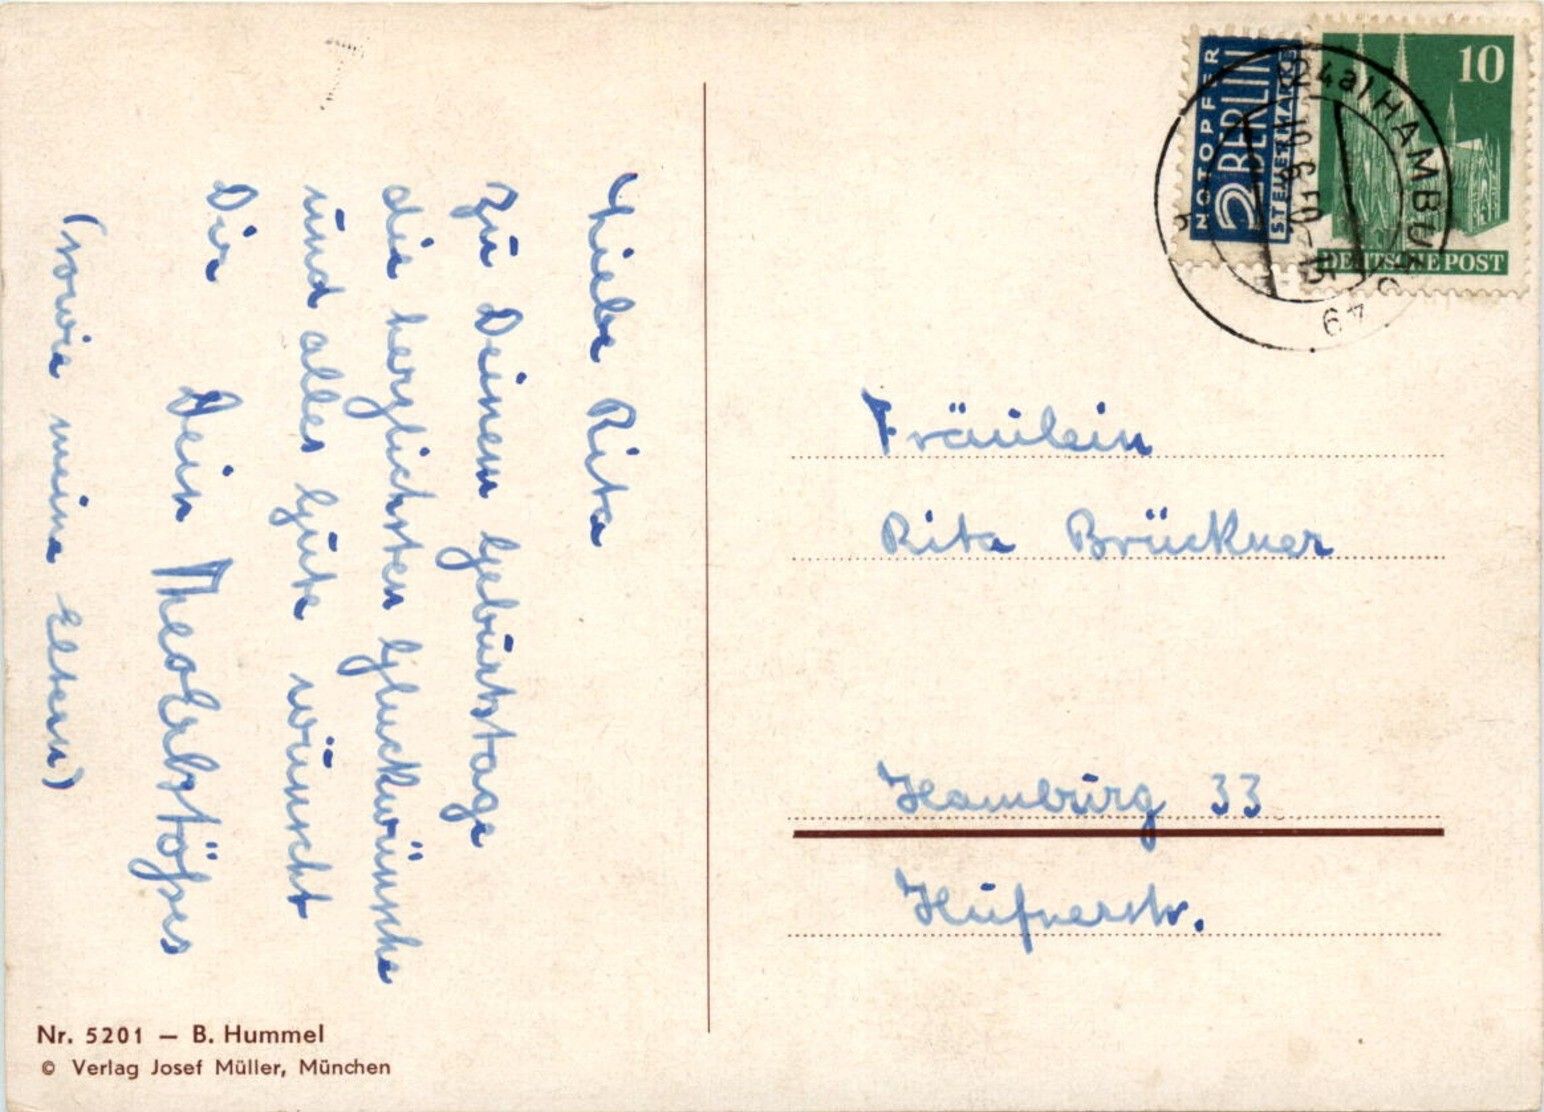 Liebe Rita
Zu Deinem Geburtstage
die herzlichsten Glückwünsche
und alles Gute wünscht
Dir Dein
(sowie meine Eltern)
Nr. 5201 — B. Hummel
© Verlag Josef Müller, München
NOTOPFER
2 BERLIN
STEUERMARKE
10
DEUTSCHE POST
(24a) HAMBURG
Fräulein
Rita Brückner
Hamburg 33
Hüfnerstr.